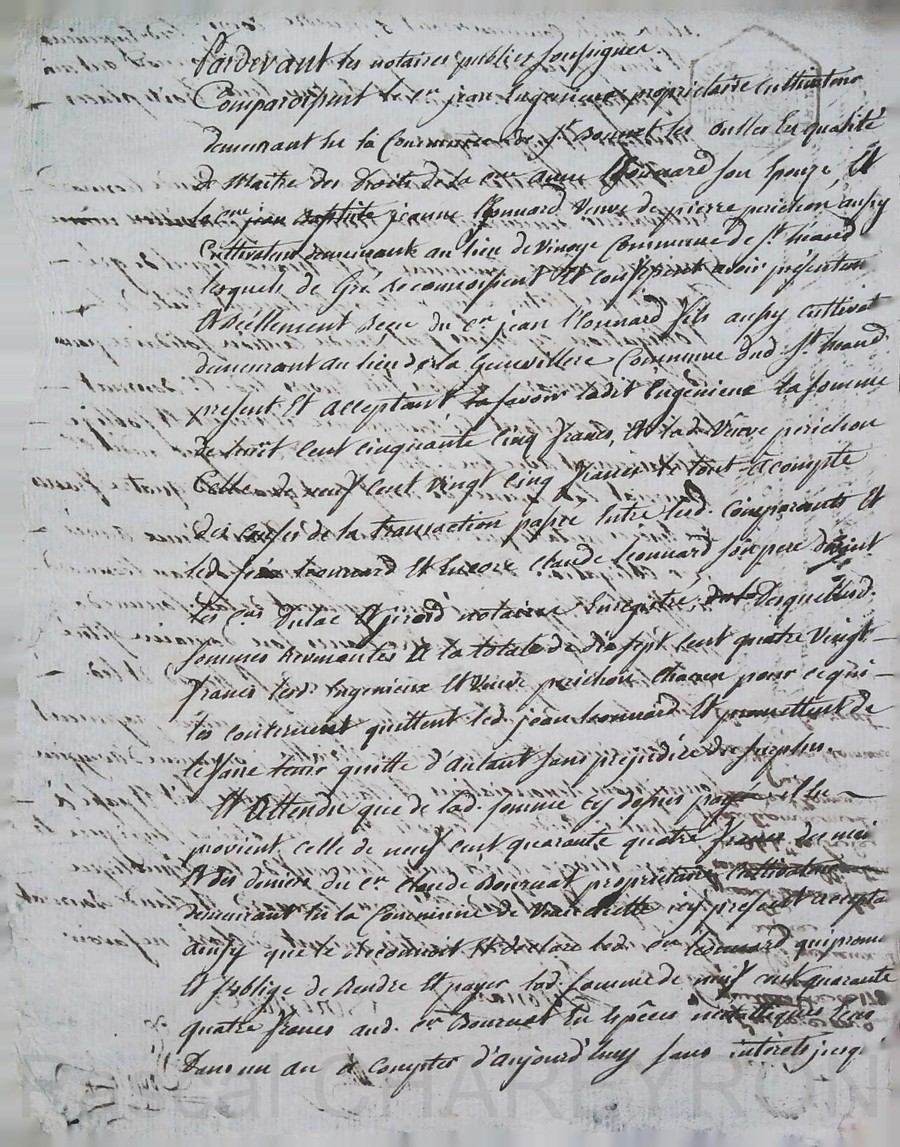 Pardevant les notaires publics soussignes
Comparoissent le cen jean Ingenieux propriétaire cultivateur
demeurant en la Commune de St Bonnet les oulles En qualité
de Maitre des droits de la cne anne Léonnard son Epouze, Et
la cne jeanne Léonnard Veuve de pierre perichon aussy
Cultivateur demeurant au lieu de Commune de St heand
lesquels de Gré Reconnoissent Et Confessent avoir présentement
Et réellement Reçu du cen jean Léonnard fils aussy cultivat
demeurant au lieu de la Commune dud. St heand
présent Et acceptant savoir ledit Ingénieux la somme
de huit Cent cinquante Cinq francs, Et lad. Veuve perichon
Celle de neuf Cent Vingt Cinq francs le tout a compte
des causes de la transaction passée Entre lesd. Comparants Et
led. Léonnard Et Encore Claude Léonnard son pere devant
les cens Dulac Et notaires Enregistré, Desquelles d.
sommes Revenantes a la totale de dix sept Cent quatre Vingt
francs lesd. Ingenieux Et Veuve perichon Chacun pour ce qui
les concernent quittent led. jean Leonnard Et promettent de
le faire tenir quitte d'autant sans préjudice du surplus.
Et Attendu que de lad. somme cy depuis payée il en
provient celle de neuf cent quarante quatre francs des
Et des deniers du cen Claude Bournat propriétaire Cultivateur
demeurant en la Commune de icy présent accepta
ainsy que le Reconnoit Et declare led. cen Léonnard qui prome
Et s'oblige de Rendre Et payer lad. somme de neuf cent quarante
quatre francs aud. cen Bournat En Espèces métalliques
Dans un an a compter d'aujourd'huy sans intérêts jusqu
Pascal CHARPYRON